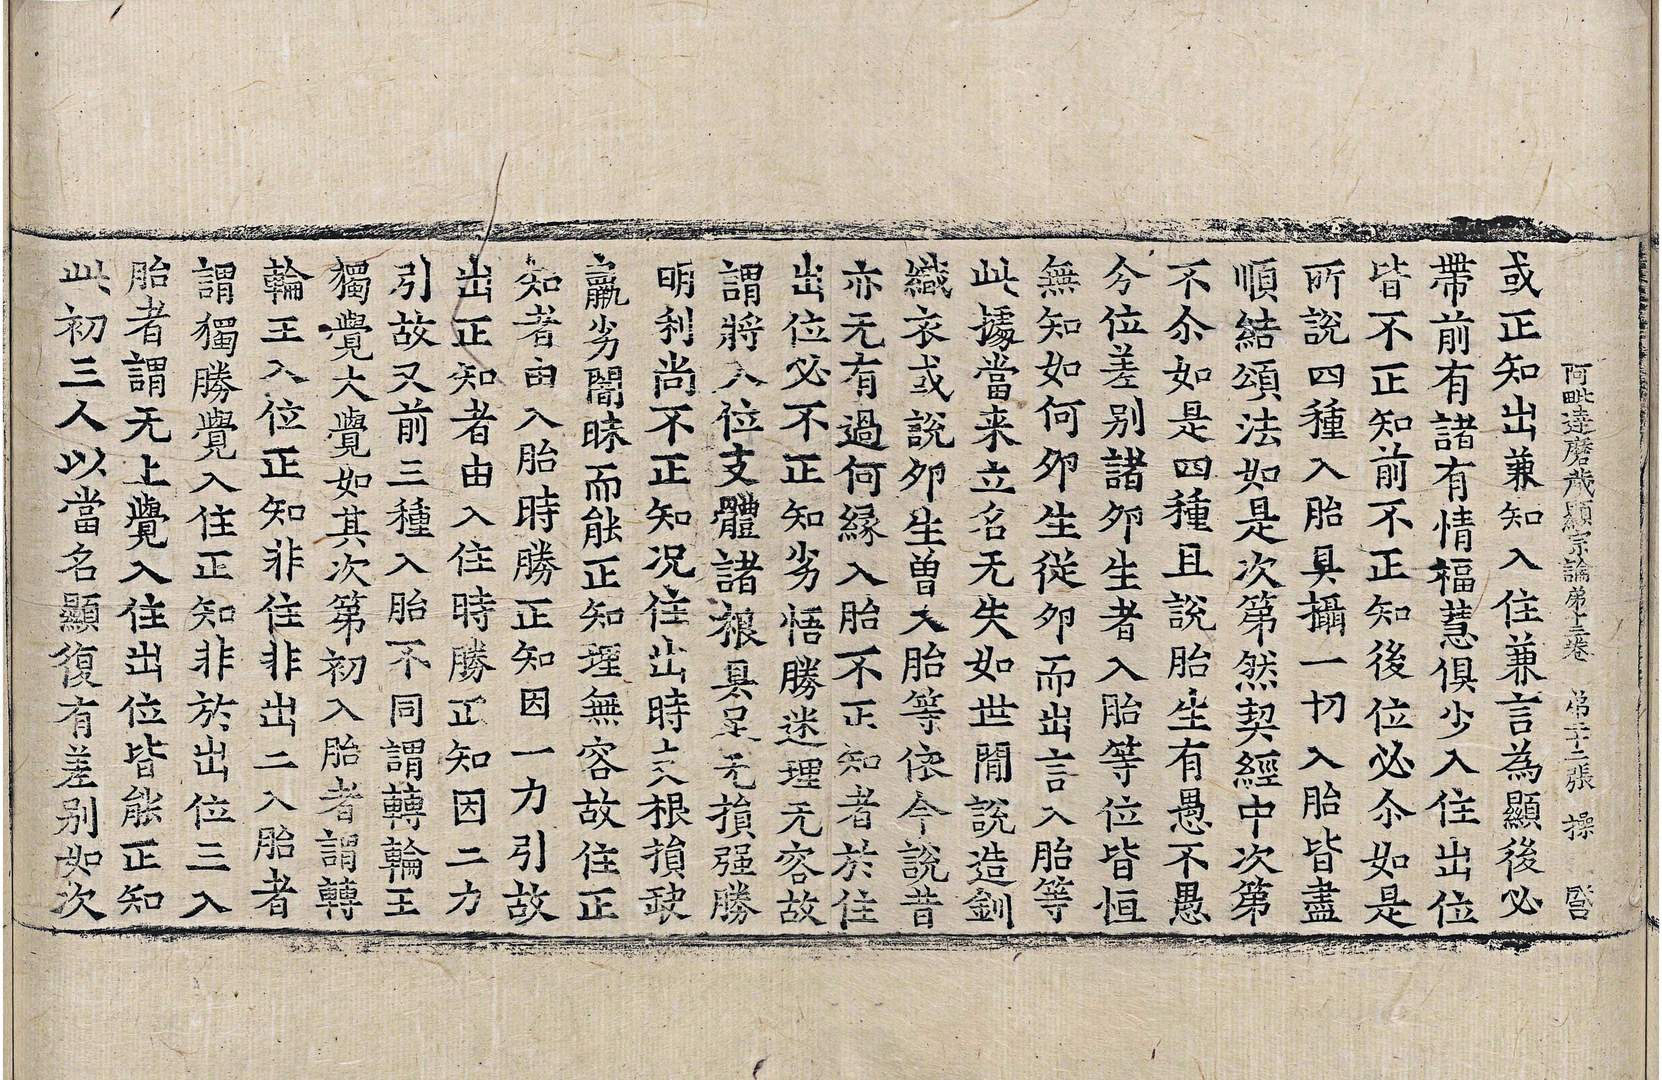 阿毗達磨藏顯宗論第十三卷 第二十二張 操
或正知出兼知入住兼言為顯後必
帶前有諸有情福慧俱少入住出位
皆不正知前不正知後位必尒如是
所說四種入胎具攝一切入胎皆盡
順結頌法如是次第然契經中次第
不尒如是四種且說胎生有愚不愚
今位差别諸夘生者入胎等位皆恒
無知如何夘生從夘而出言入胎等
此據當来立名无失如世間說造釧
織衣或說夘生曽入胎等依今說昔
亦无有過何縁入胎不正知者於住
出位必不正知劣悟勝迷理无容故
謂將入位支體諸根具足无損强勝
明利尚不正知况住出時支根損缺
羸劣闇昧而能正知理無容故住正
知者由入胎時勝正知因一力引故
出正知者由入住時勝正知因二力
引故又前三種入胎不同謂轉輪王
獨覺大覺如其次第初入胎者謂轉
輪王入位正知非住非出二入胎者
謂獨勝覺入住正知非於出位三入
胎者謂无上覺入住出位皆能正知
此初三人以當名顯復有差别如次